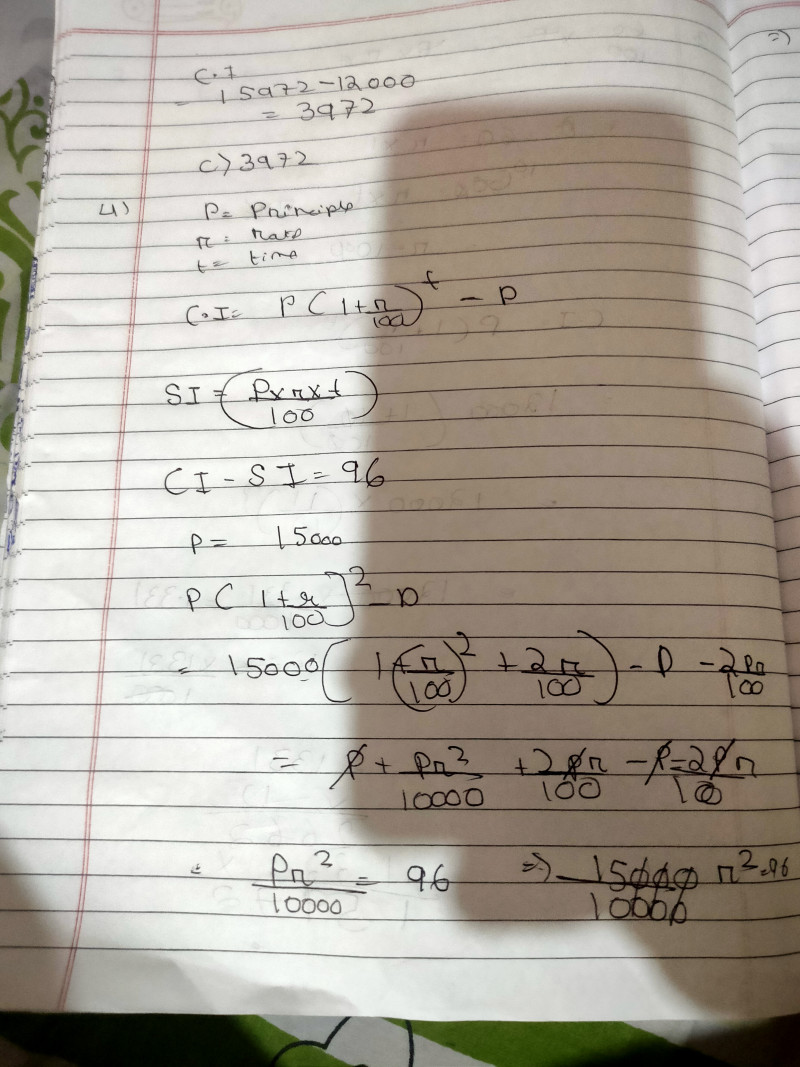 C.I
= 15972-12000
= 3972
C) 3972
4) P= Principle
r = rate
t = time
C.I= P(1+r/100)^t - P
SI = (P×r×t/100)
CI-SI=96
P= 15000
P(1+r/100)^2-P
= 15000(1+(r/100)^2+2r/100)-P-2Pr/100
= P+Pr^2/10000+2Pr/100-P=2Pr/100
Pr^2/10000=96 => 15000/10000 r^2=96